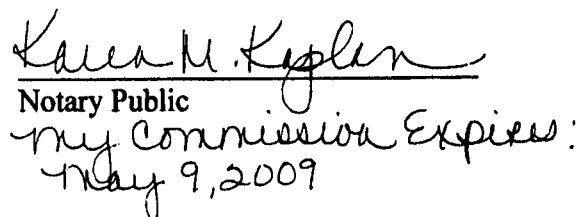 Karen M. Kaplan
Notary Public
My Commission Expires:
May 9, 2009